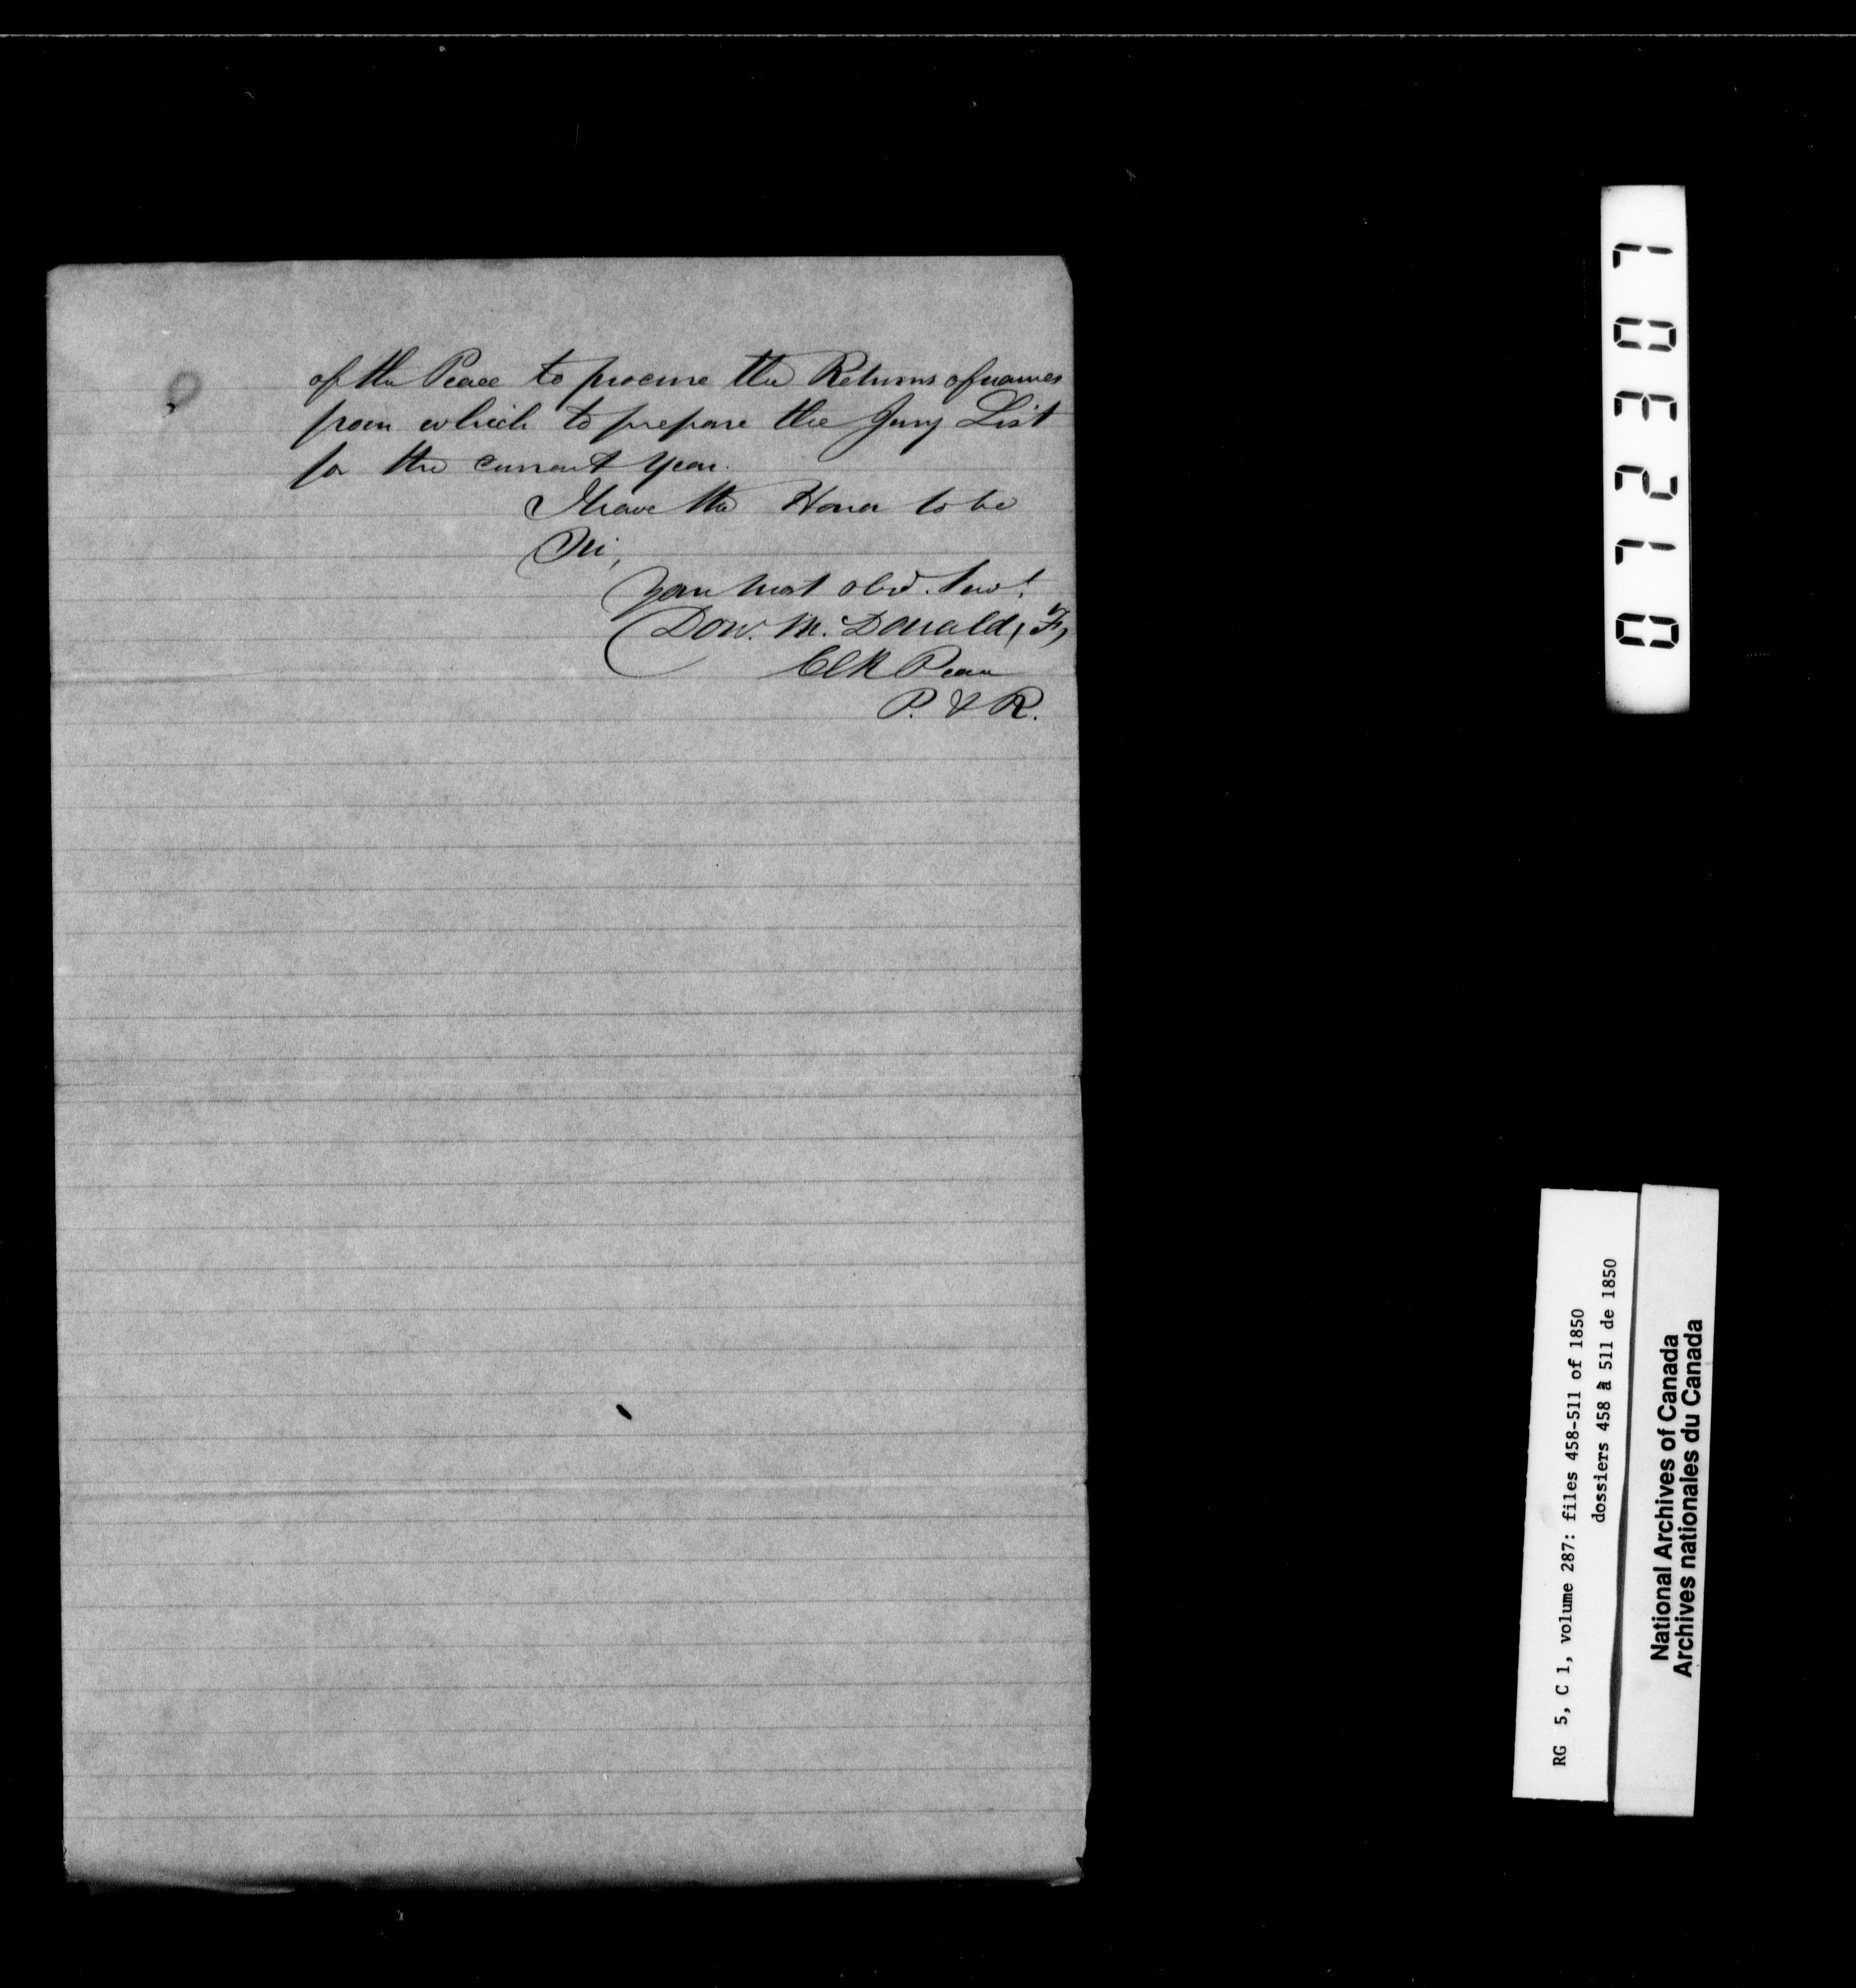 of the Peace to procure the Returns of names
from which to prepare the Jury List
for the current year.
I have the Honor to be
Sir,
Your most obd. Serv.t
Don. McDonald,
Clk Peace
P. & R.
072307
RG 5, C 1, volume 287: files 458-511 of 1850
dossiers 458 à 511 de 1850
National Archives of Canada
Archives nationales du Canada